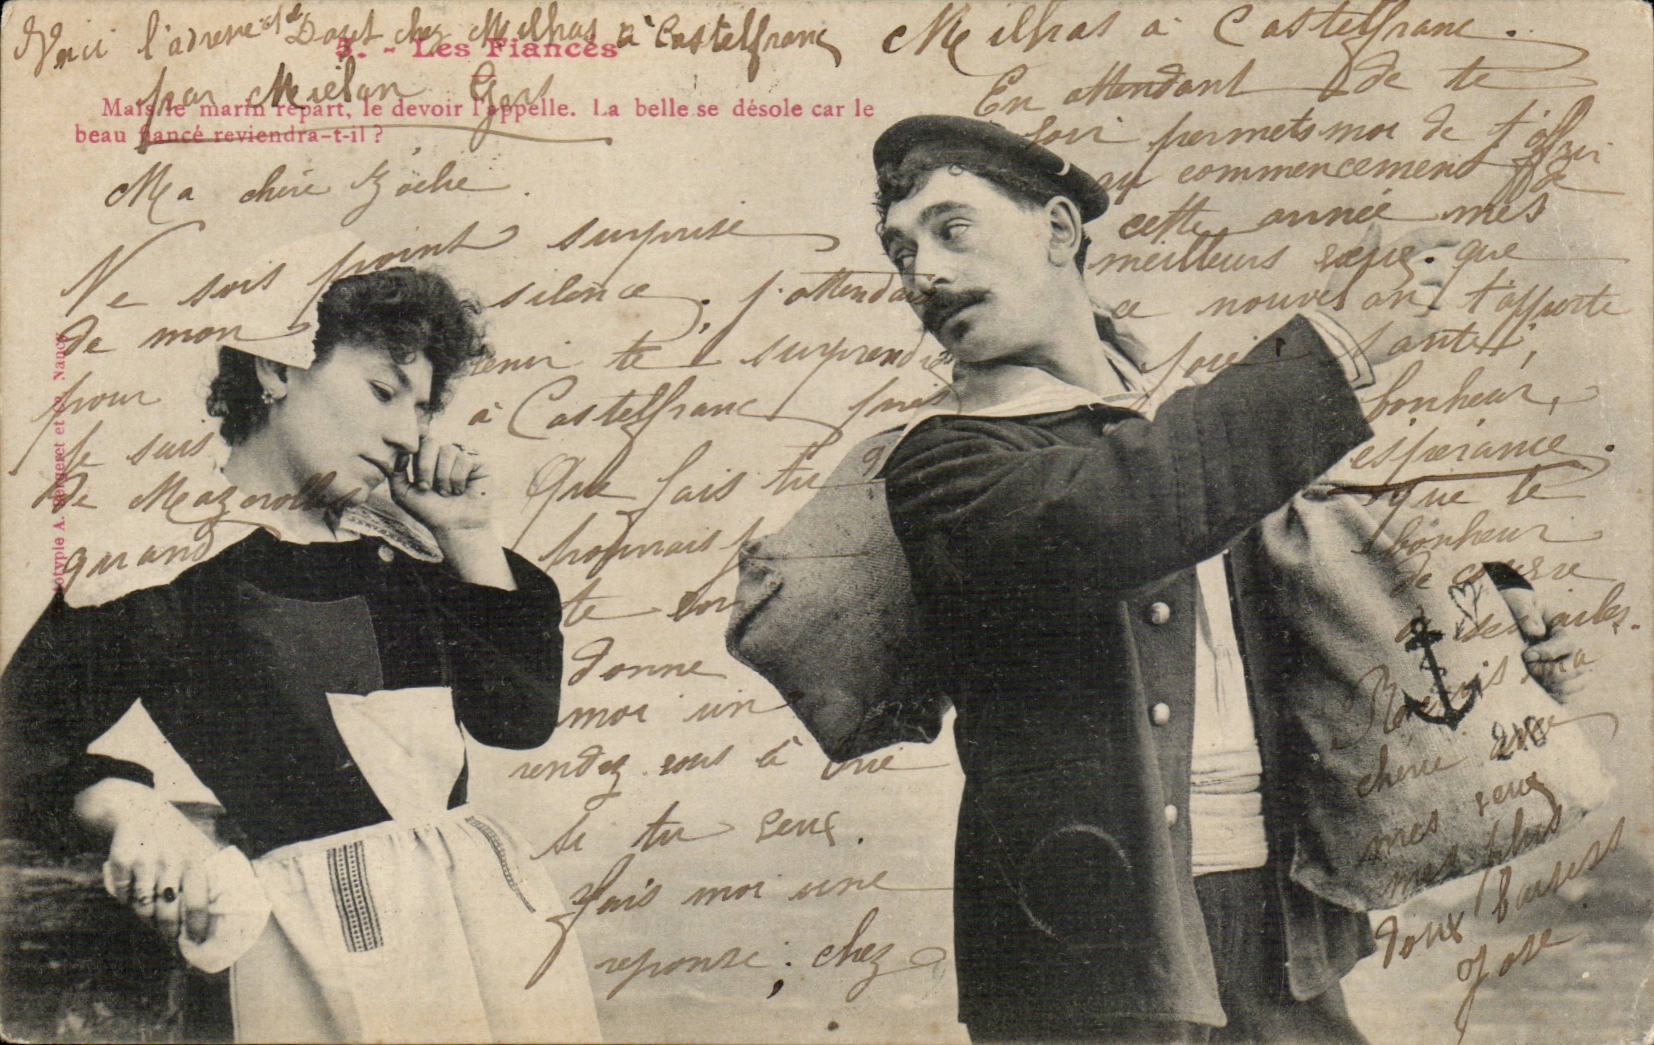 Voici l'adresse Melle Doat chez Milhas à Castelfranc
par Mielan Gers
5. - Les Fiancés
Mais le marin repart, le devoir l'appelle. La belle se désole car le
beau fiancé reviendra-t-il ?
Ma chère
Ne sois point surprise
de mon silence, j'attendais
pour venir te surprendre
à Castelfranc mais
je suis
de Mazerolles Que fais tu ?
quand pourrais je
te voir
donne
moi un
rendez vous à Vie
si tu veux.
Fais moi une
reponse ; chez
Milhas à Castelfranc.
En attendant de te
voir permets moi de t'offrir
au commencement de
cette année mes
meilleurs vœux. que
ce nouvel an t'apporte
joie, santé,
bonheur,
espérance.
que le
bonheur
de
a des ailes.
Reçois ma
chérie avec
mes vœux
mes plus
doux baisers
Phototypie A. Bergeret et Cie, Nancy